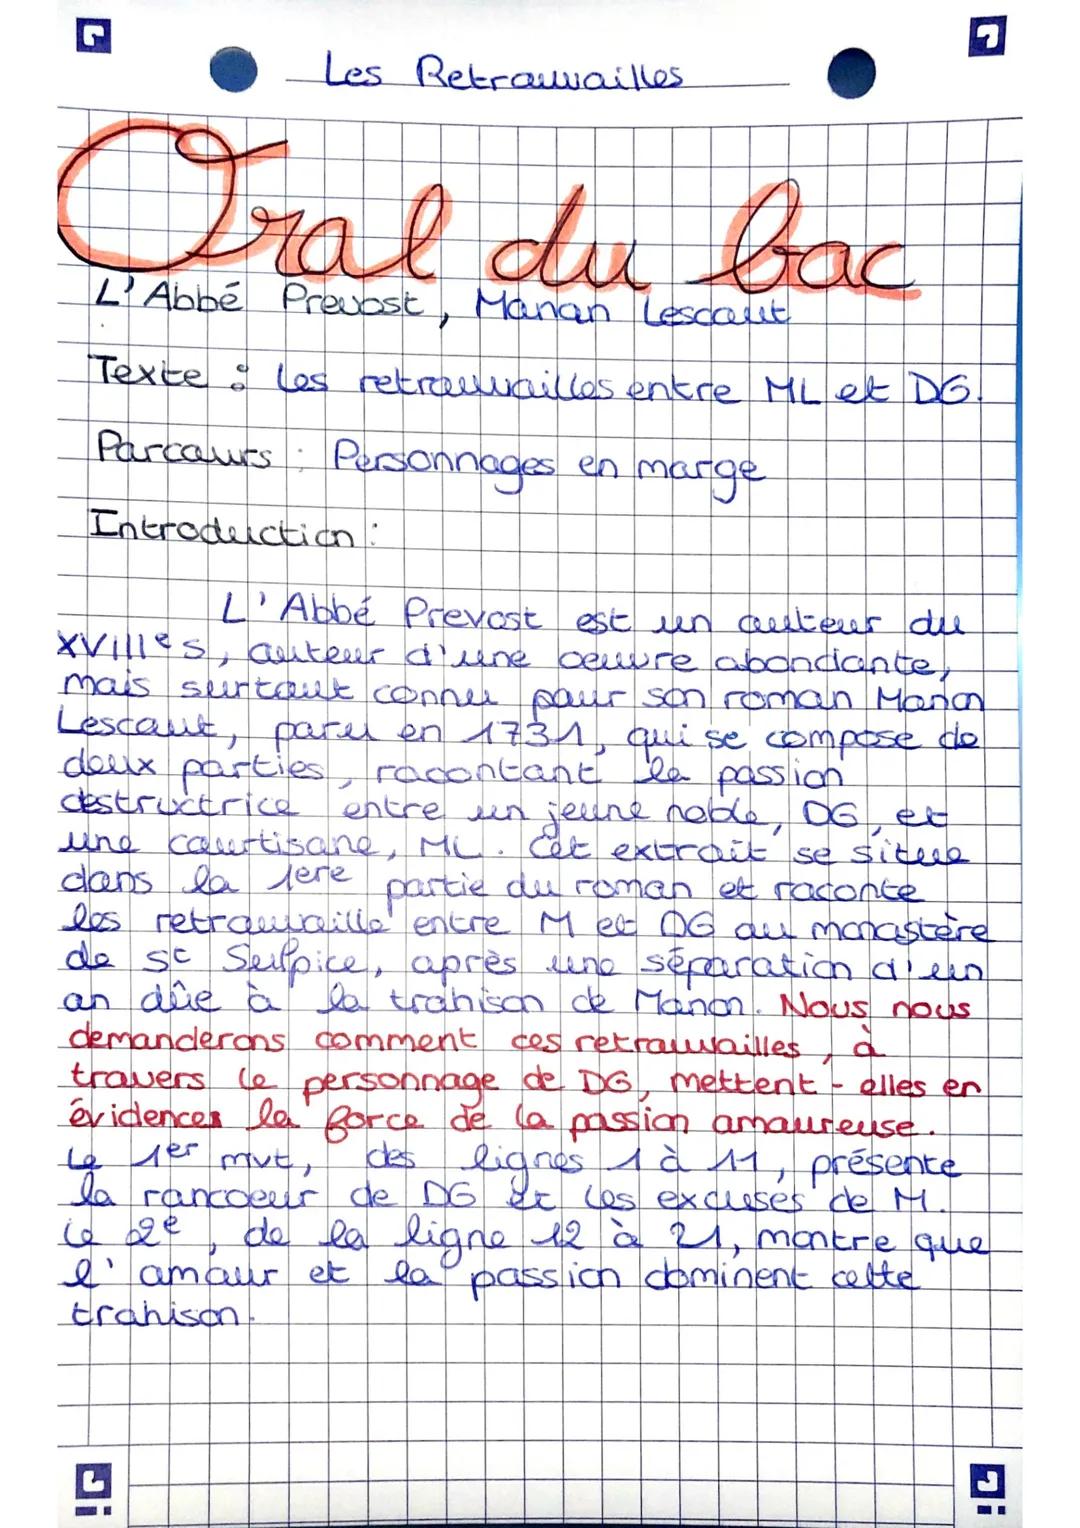 Les Retrouvailles
Oral du bac
L'Abbé Prevost, Manon Lescaut
Texte : Les retrouvailles entre ML et DG.
Parcours : Personnages en marge
Introduction :
L'Abbé Prevost est un auteur du
XVIIIe s, auteur d'une oeuvre abondiante,
mais surtout connu pour son roman Manon
Lescaut, paru en 1731, qui se compose de
deux parties, racontant la passion
destructrice entre un jeune noble, DG, et
une courtisane, ML. Cet extrait se situe
dans la 1ere partie du roman et raconte
les retrouvaille entre M et DG au monastère
de st Sulpice, après une séparation d'un
an dûe à la trahison de Manon. Nous nous
demanderons comment ces retrouvailles, à
travers le personnage de DG, mettent-elles en
évidences la force de la passion amoureuse.
Le 1er mvt, des lignes 1 à 11, présente
la rancoeur de DG et les excuses de M.
Le 2e, de la ligne 12 à 21, montre que
l'amour et la passion dominent cette
trahison.